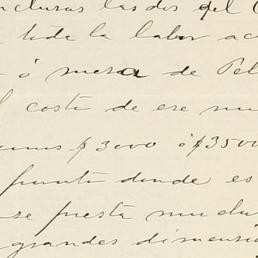 clusras las dos del C
toda la labor ac
ó mesa de Pel
l costo de ese mu
unus $3000 ó $3500
punto donde es
se presta mucho
grandes dimensio